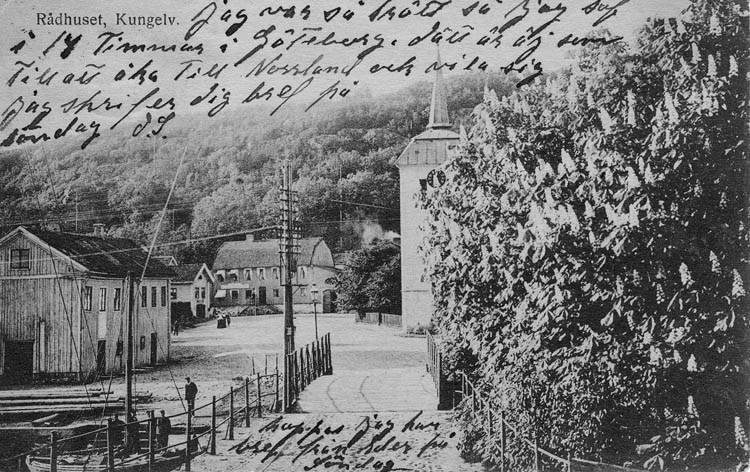 Rådhuset, Kungelv.
jag var så trött så jag sof
i 14 Timmar i Göteborg. dätt är ej som
Till att åka Till Norrland och vila sig
jag skrifer dig bref på
söndag d.S.
hoppas jag har
bref från der på
Söndag